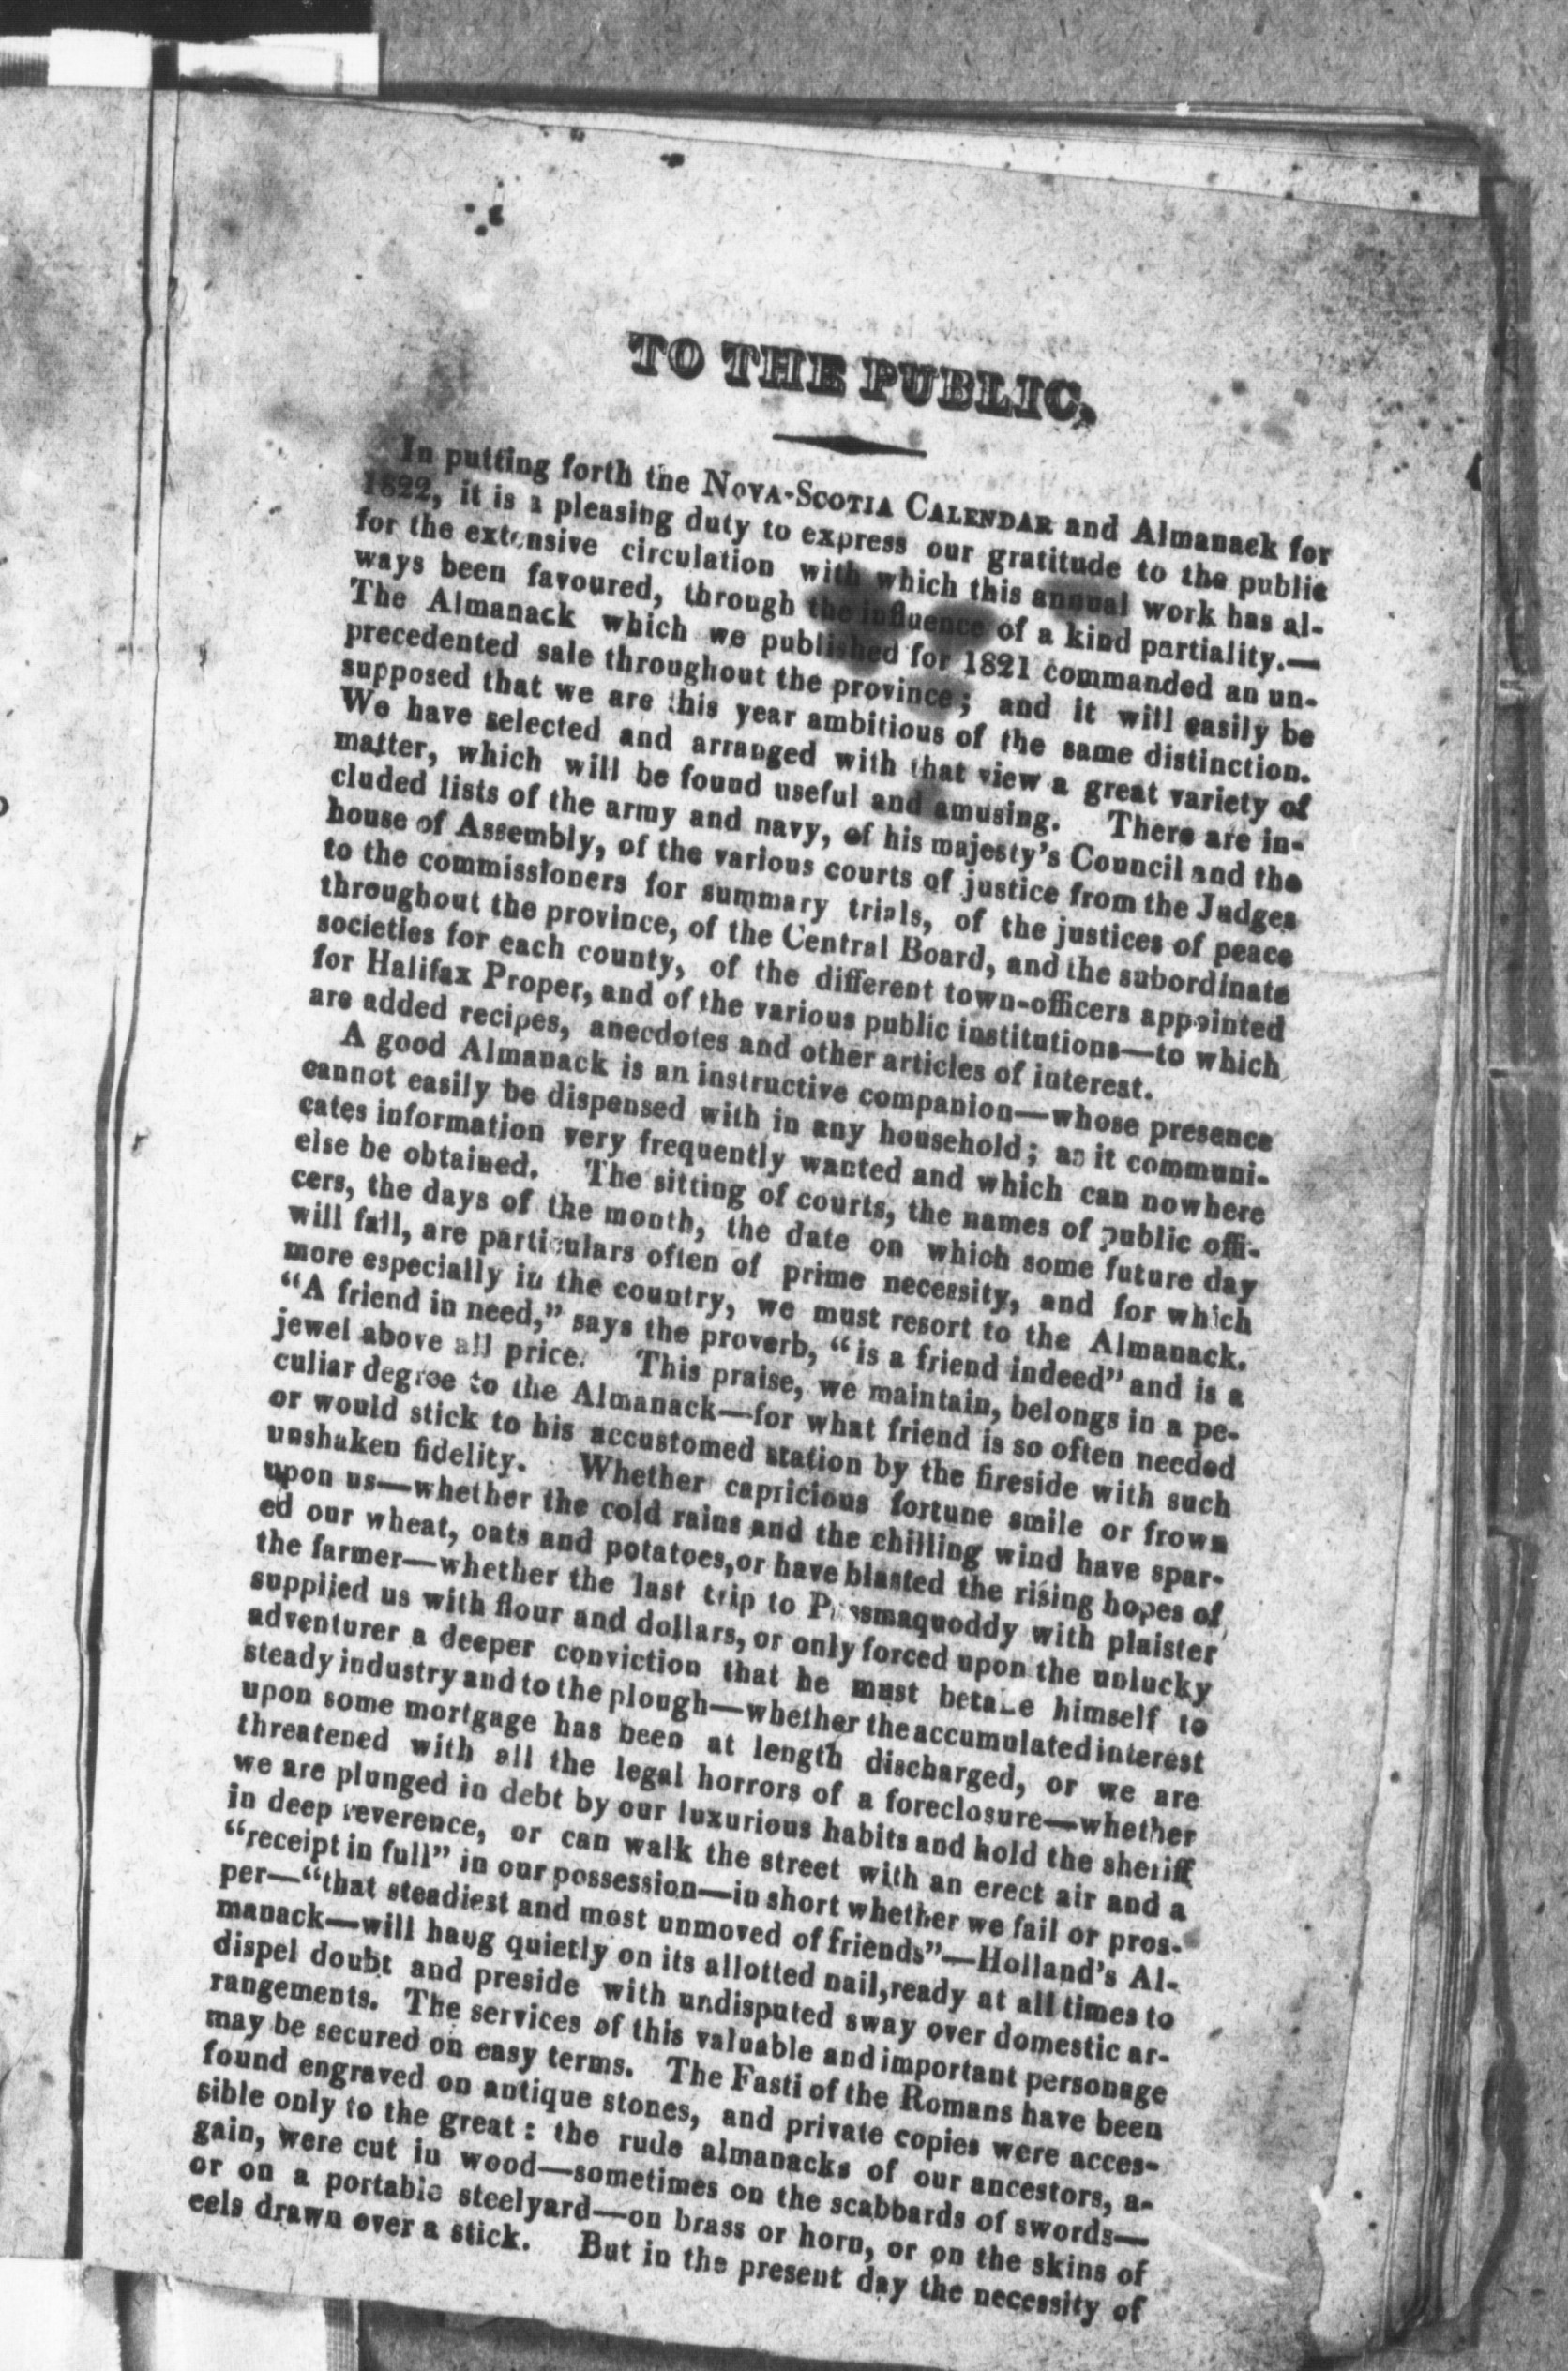 TO THE PUBLIC.
In putting forth the NOVA-SCOTIA CALENDAR and Almanack for
1822, it is a pleasing duty to express our gratitude to the public
for the extensive circulation with which this annual work has al-
ways been favoured, through the influence of a kind partiality.—
The Almanack which we published for 1821 commanded an un-
precedented sale throughout the province; and it will easily be
supposed that we are this year ambitious of the same distinction.
We have selected and arranged with that view a great variety of
matter, which will be found useful and amusing. There are in-
cluded lists of the army and navy, of his majesty's Council and the
house of Assembly, of the various courts of justice from the Judges
to the commissioners for summary trials, of the justices of peace
throughout the province, of the Central Board, and the subordinate
societies for each county, of the different town-officers appointed
for Halifax Proper, and of the various public institutions—to which
are added recipes, anecdotes and other articles of interest.
A good Almanack is an instructive companion—whose presence
cannot easily be dispensed with in any household; as it communi-
cates information very frequently wanted and which can nowhere
else be obtained. The sitting of courts, the names of public offi-
cers, the days of the month, the date on which some future day
will fall, are particulars often of prime necessity, and for which
more especially in the country, we must resort to the Almanack.
"A friend in need," says the proverb, "is a friend indeed" and is a
jewel above all price. This praise, we maintain, belongs in a pe-
culiar degree to the Almanack—for what friend is so often needed
or would stick to his accustomed station by the fireside with such
unshaken fidelity. Whether capricious fortune smile or frown
upon us—whether the cold rains and the chilling wind have spar-
ed our wheat, oats and potatoes, or have blasted the rising hopes of
the farmer—whether the last trip to Passmaquoddy with plaister
supplied us with flour and dollars, or only forced upon the unlucky
adventurer a deeper conviction that he must betake himself to
steady industry and to the plough—whether the accumulated interest
upon some mortgage has been at length discharged, or we are
threatened with all the legal horrors of a foreclosure—whether
we are plunged in debt by our luxurious habits and hold the sheriff
in deep reverence, or can walk the street with an erect air and a
"receipt in full" in our possession—in short whether we fail or pros-
per—"that steadiest and most unmoved of friends"—Holland's Al-
manack—will hang quietly on its allotted nail, ready at all times to
dispel doubt and preside with undisputed sway over domestic ar-
rangements. The services of this valuable and important personage
may be secured on easy terms. The Fasti of the Romans have been
found engraved on antique stones, and private copies were acces-
sible only to the great: the rude almanacks of our ancestors, a-
gain, were cut in wood—sometimes on the scabbards of swords—
or on a portable steelyard—on brass or horn, or on the skins of
eels drawn over a stick. But in the present day the necessity of